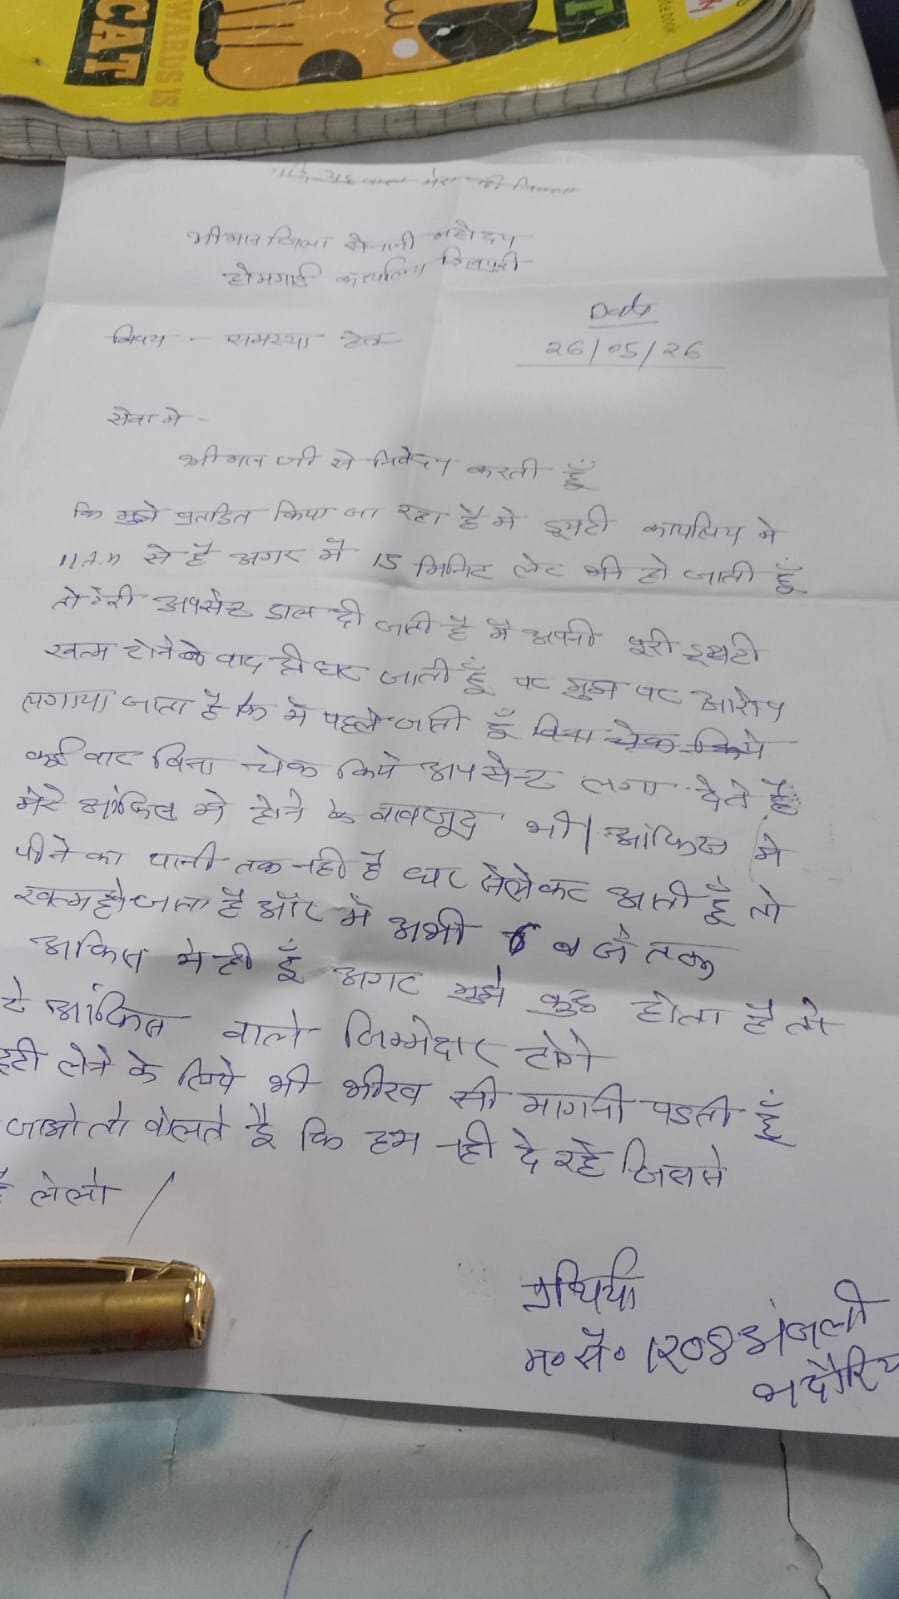 WARDS IS
CAT
श्रीमान जिला सेनानी महोदय
होमगार्ड कार्यालय शिवपुरी
Date
26/05/26
विषय - समस्या हेतु
सेवा मे -
श्रीमान जी से निवेदन करती हूँ
कि मुझे प्रताडित किया जा रहा है मे ड्यूटी कार्यालय मे
11 A.M से है अगर मैं 15 मिनिट लेट भी हो जाती हूँ
तो मेरी अपसेन्ट डाल दी जाती है मैं अपनी पूरी ड्यूटी
खत्म होने के वाद ही घर जाती हूँ पर मुझ पर आरोप
लगाया जाता है कि मे पहले जाती हूँ विना चेक किये
कई वार विना चेक किये अपसेन्ट लगा देते है
मेरे ऑफिस मे होने के वावजूद भी / ऑफिस मे
पीने का पानी तक नही है घर से लेकर आती हूँ तो
खत्म हो जाता है और मे अभी 6 वजे तक
ऑफिस मे ही हूँ अगर मुझे कुछ होता है तो
ये ऑफिस वाले जिम्मेदार होगे
टी लेने के लिये भी भीख सी मागनी पडती हूँ
जाओ तो वोलते है कि हम नही दे रहे जिससे
है लेलो /
प्रार्थिया
म॰ सै॰ 1208 अंजली
भदौरिय